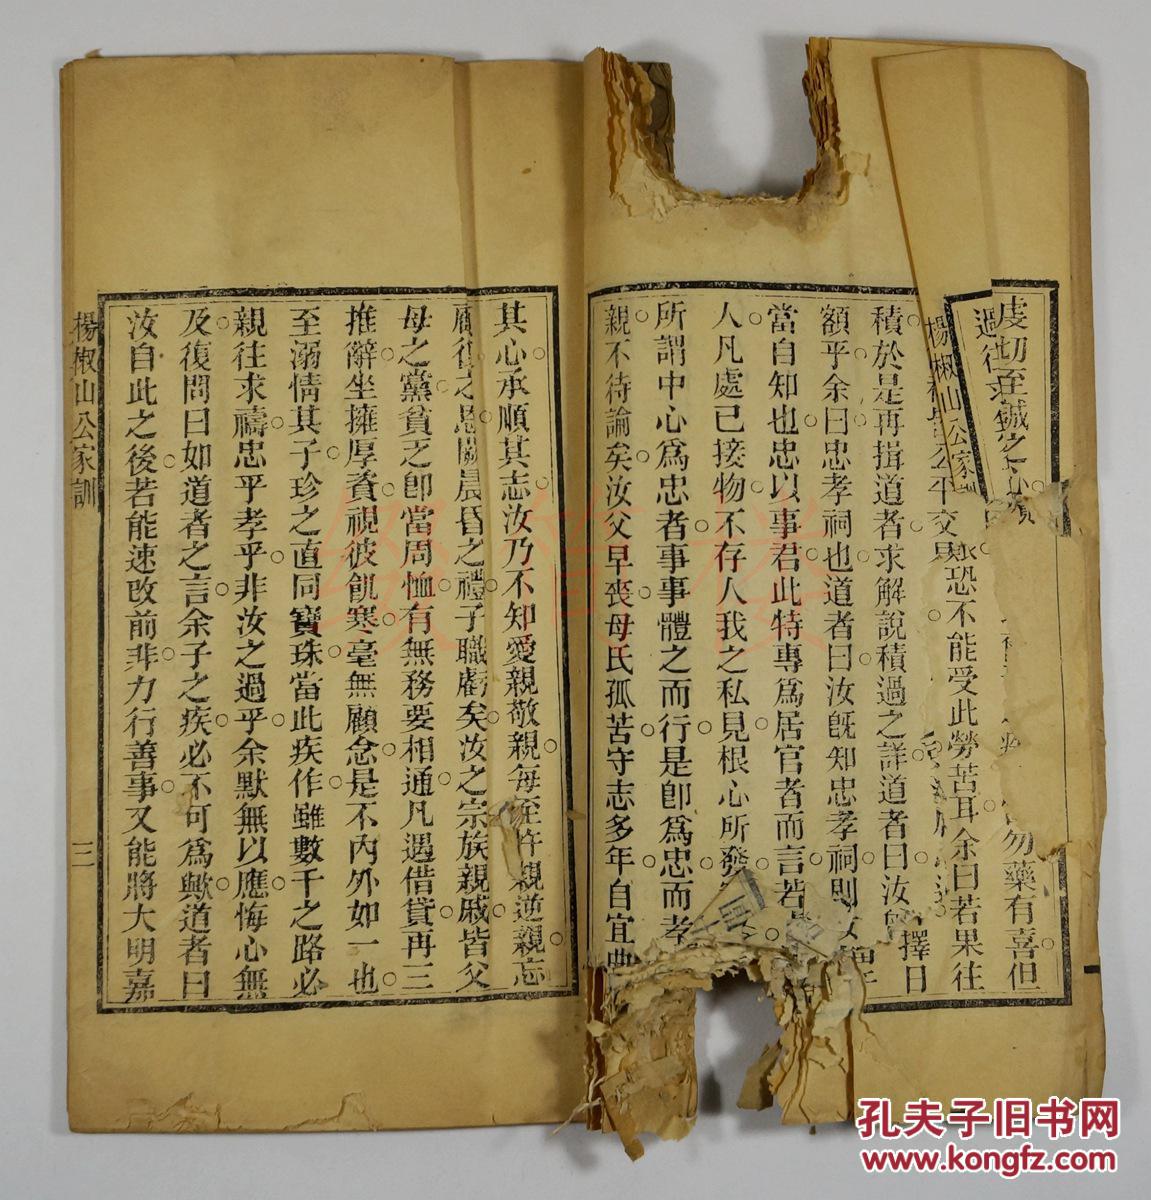 虔切至誠之心
勿藥有喜但
過往
恐不能受此勞苦耳余曰若果往
楊椒山公家訓
平交
擇日
積於是再揖道者求解說積過之詳道者曰汝
額乎余曰忠孝祠也道者曰汝旣知忠孝祠則
當自知也忠以事君此特專爲居官者而言若
人凡處已接物不存人我之私見根心所發
所謂中心爲忠者事事體之而行是卽爲忠而孝
親不待論矣汝父早喪母氏孤苦守志多年自宜
其心承順其志汝乃不知愛親敬親每至忤親逆親忘
晨昏之禮子職虧矣汝之宗族親戚皆父
母之黨貧乏卽當周恤有無務要相通凡遇借貸再三
推辭坐擁厚資視彼飢寒毫無顧念是不內外如一也
至溺情其子珍之直同寶珠當此疾作雖數千之路必
親往求禱忠乎孝乎非汝之過乎余默無以應悔心無
及復問曰如道者之言余子之疾必不可爲歟道者曰
汝自此之後若能速改前非力行善事又能將大明嘉
楊椒山公家訓
三
孔夫子旧书网
www.kongfz.com